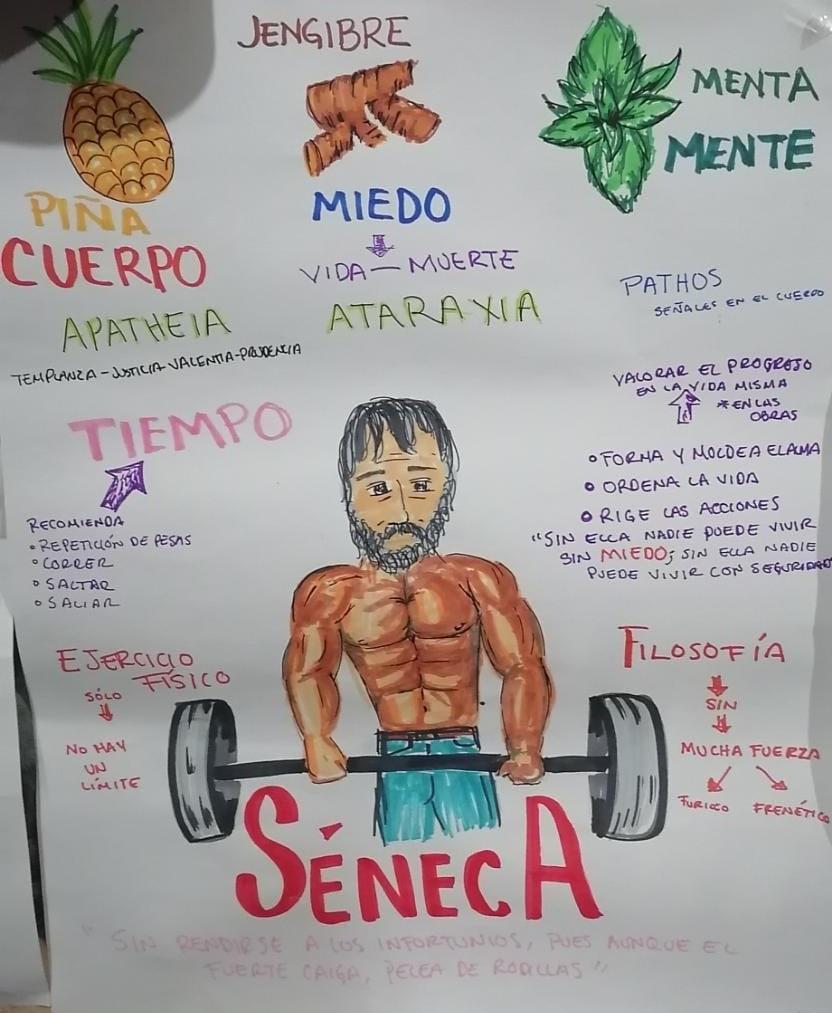 JENGIBRE
PIÑA
CUERPO
MIEDO
VIDA — MUERTE
MENTA
MENTE
APATHEIA
ATARAXIA
TEMPLANZA - JUSTICIA - VALENTIA - PRUDENCIA
PATHOS
SEÑALES EN EL CUERPO
TIEMPO
RECOMIENDA
• REPETICIÓN DE PESAS
• CORRER
• SALTAR
• SALIAR
VALORAR EL PROGRESO
EN LA VIDA MISMA
* EN LAS
OBRAS
• FORMA Y MOLDEA EL ALMA
• ORDENA LA VIDA
• RIGE LAS ACCIONES
"SIN ELLA NADIE PUEDE VIVIR
SIN MIEDO; SIN ELLA NADIE
PUEDE VIVIR CON SEGURIDAD
EJERCICIO
FÍSICO
SÓLO
NO HAY
UN
LÍMITE
FILOSOFÍA
SIN
MUCHA FUERZA
FURIOSO FRENÉTICO
SÉNECA
"SIN RENDIRSE A LOS INFORTUNIOS, PUES AUNQUE EL
FUERTE CAIGA, PELEA DE RODILLAS"